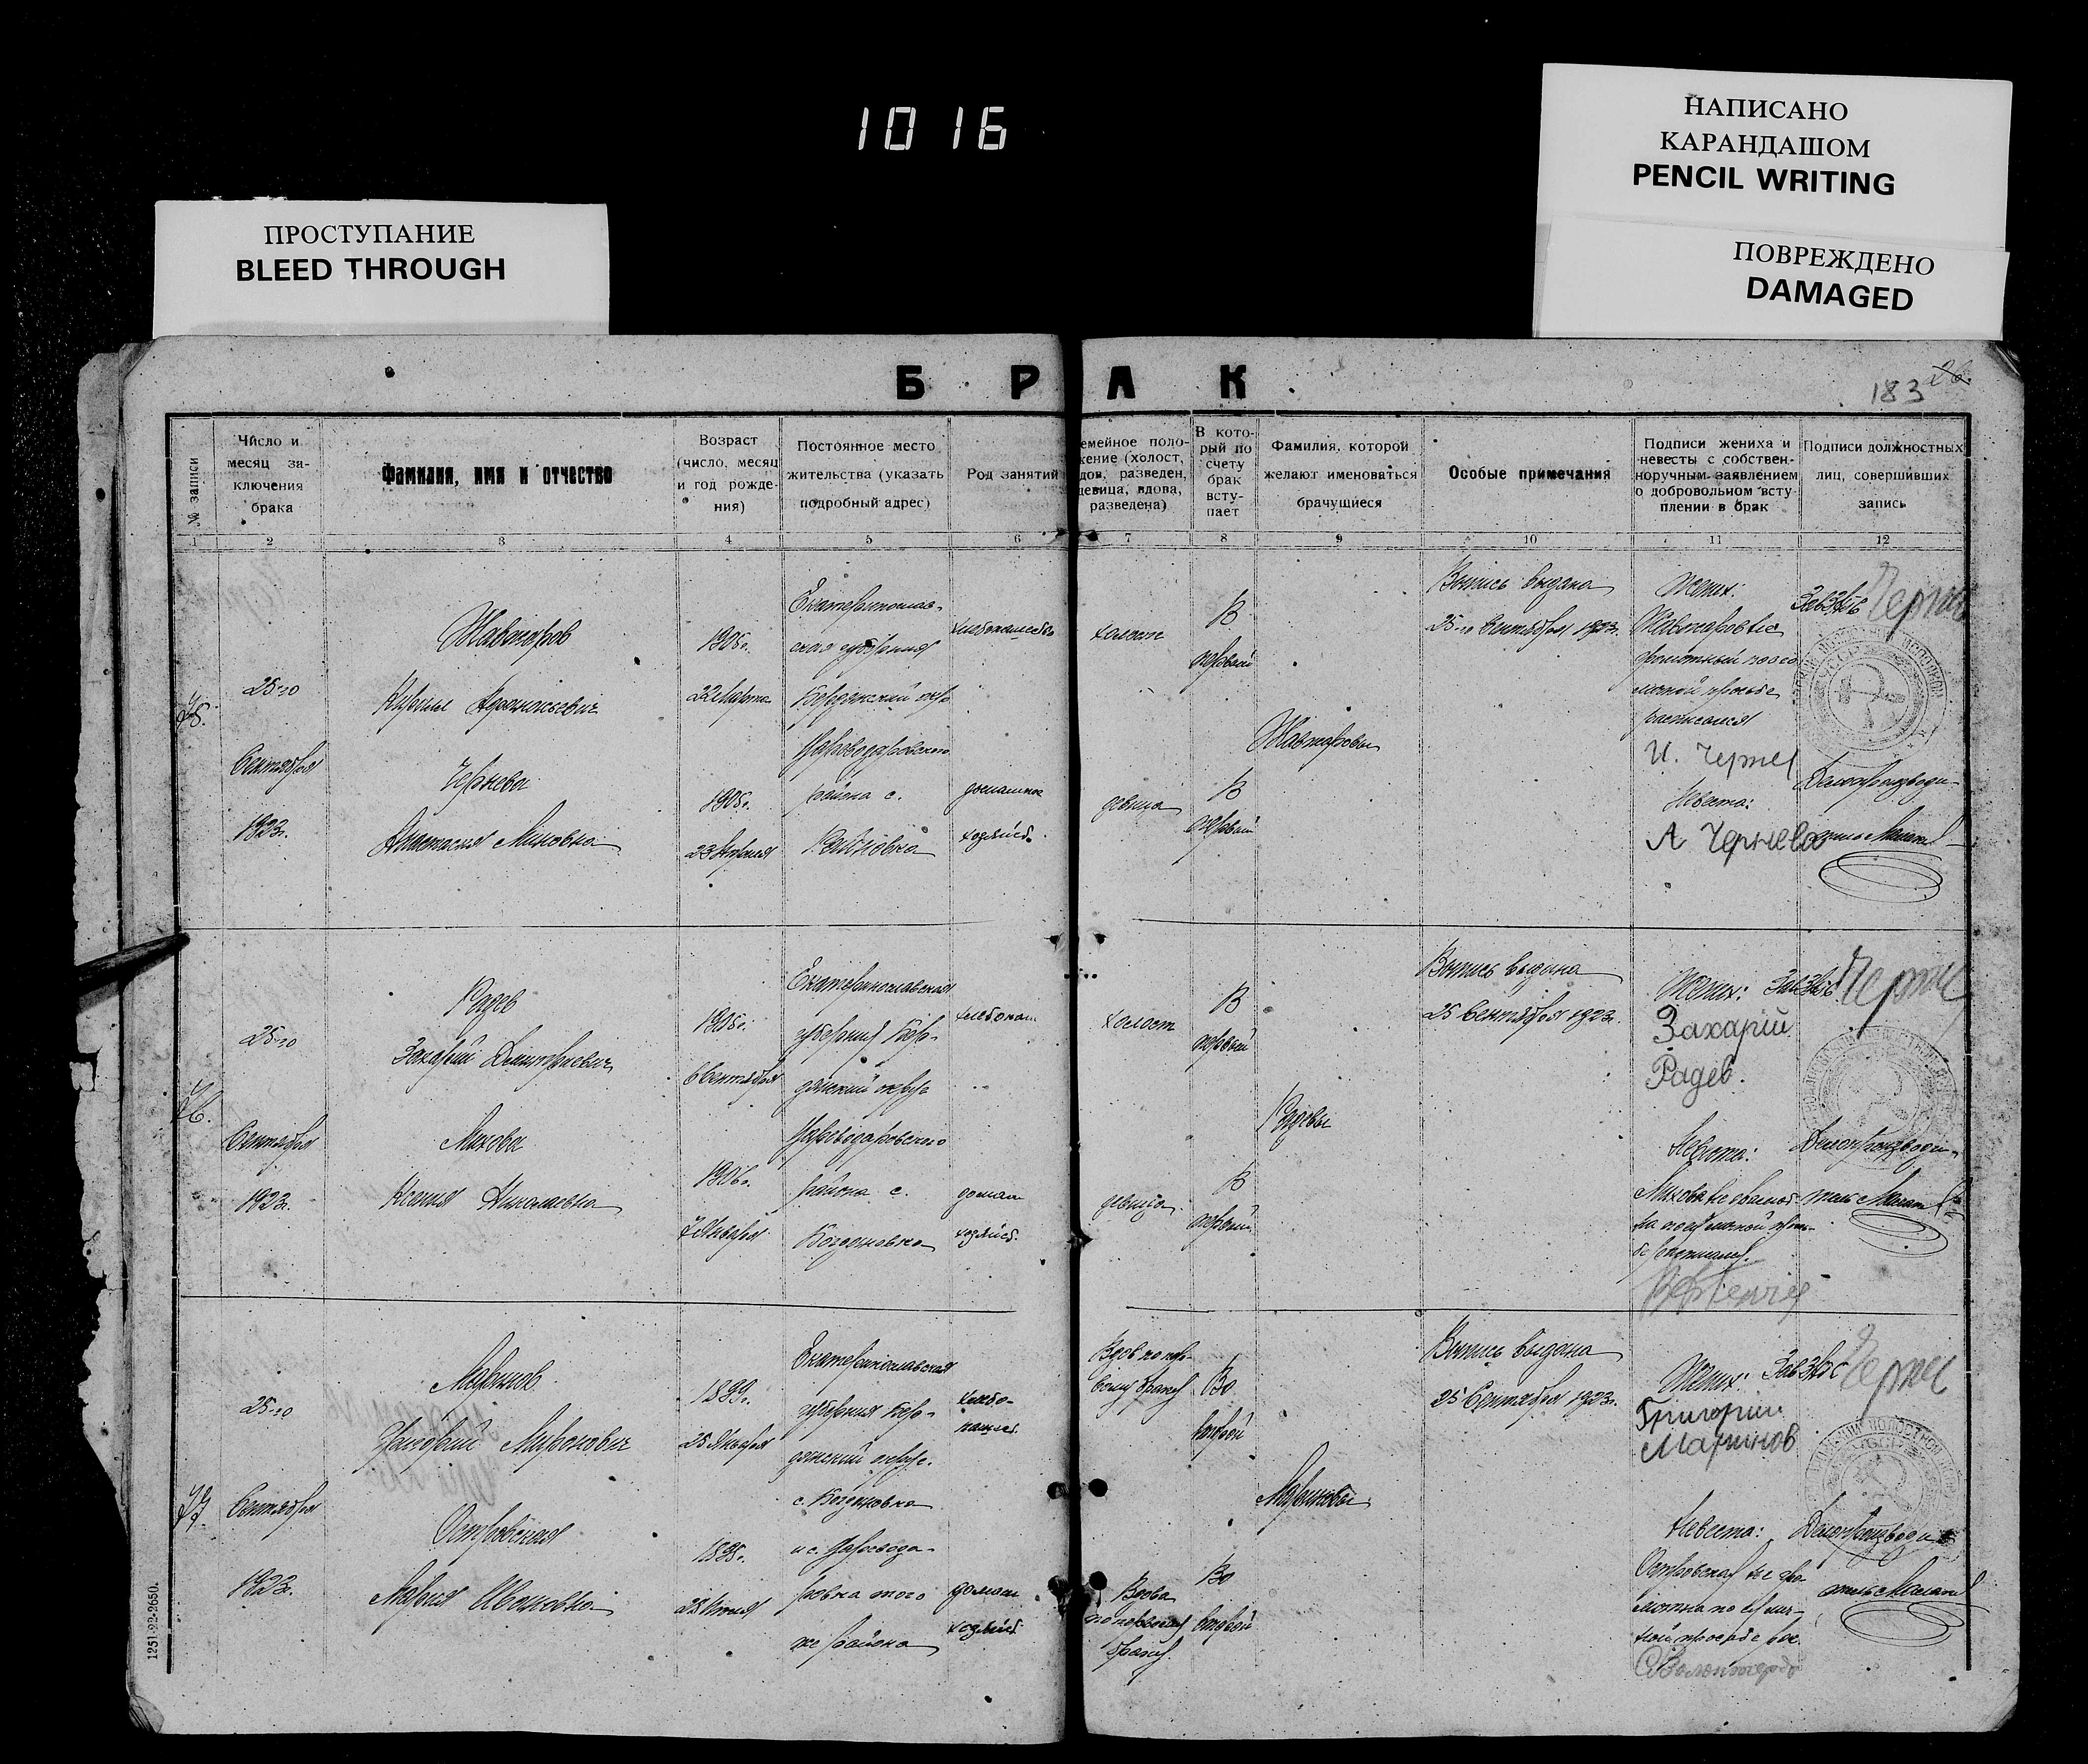 1016
НАПИСАНО
КАРАНДАШОМ
PENCIL WRITING
ПОВРЕЖДЕНО
DAMAGED
ПРОСТУПАНИЕ
BLEED THROUGH
БРАК
183
26.
№ записи
Число и
месяц за-
ключения
брака
Фамилия, имя и отчество
Возраст
(число, месяц
и год рожде-
ния)
Постоянное место
жительства (указать
подробный адрес)
Род занятий
емейное поло-
жение (холост,
вдов, разведен,
девица, вдова,
разведена)
В кото-
рый по
счету
брак
всту-
пает
Фамилия, которой
желают именоваться
брачущиеся
Особые примечания
Подписи жениха и
невесты с собствен-
норучным заявлением
о добровольном всту-
плении в брак
Подписи должностных
лиц, совершивших
запись
1 2 3 4 5 6 7 8 9 10 11 12
75.
25-го
Сентября
1923г.
Жавтаров
Чернева
Анастасия
1905г.
22 Марта
1905г.
Екатеринослав-
ской губерния
Бердянский окр.
Цареводаровского
района с.
домашнее
хозяйсв.
холост
В
первый
девица
В
первый
Жавтаровы
Выпись выдана
25-го Сентября 1923г.
Жених:
расписался
И. Чернев
Невеста:
А Чернева
ЗавЗАГС
Делопроизводи-
тель
76.
25-го
Сентября
1923г.
Радев
Захарий Дмитриевич
Михова
Ксения Николаевна
1905г.
6 Сентября
1906г.
7 Января
Екатеринославская
губерния Бер-
дянский округ
Цареводаровского
района с.
Богдановка
хлебопаш
домаш
хозяйсв.
холост
В
первый
девица
В
первый
Радевы
Выпись выдана
25 Сентября 1923г.
Жених:
Захарій
Радев.
Невеста:
ЗавЗАГС
Делопроизводи-
тель
77.
25-го
Сентября
1923г.
Маринов
Григорий Миронович
Островская
Мария Ивановна
1899г.
25 Января
1895г.
Екатеринославская
губерния Бер-
дянский округ.
с. Богдановка
и с. Царевода-
ровка того
же района
хлебо-
пашес.
домаш
хозяйсв.
Вдов по пер-
вому браку
Во
второй
Вдова
по первому
браку
Во
второй
Мариновы
Выпись выдана
25 Сентября 1923г.
Жених:
Григорий
Маринов
Невеста:
Островская не гра-
мотна по её лич-
ной просьбе рас.
ЗавЗАГС
Делопроизводи-
тель
1251-22-2650.